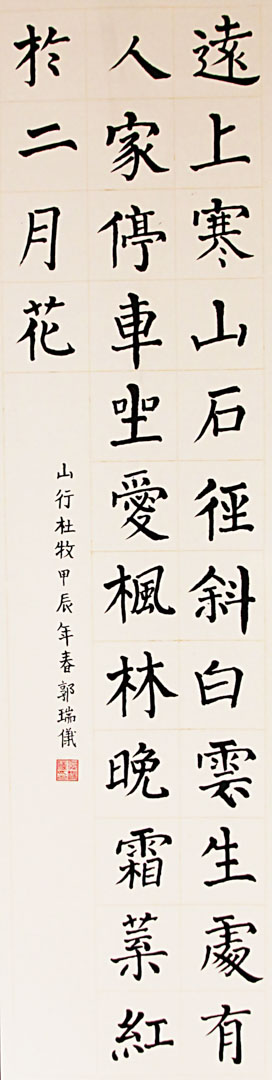 遠上寒山石徑斜白雲生處有
人家停車坐愛楓林晚霜葉紅
於二月花
山行杜牧甲辰年春郭瑞儀